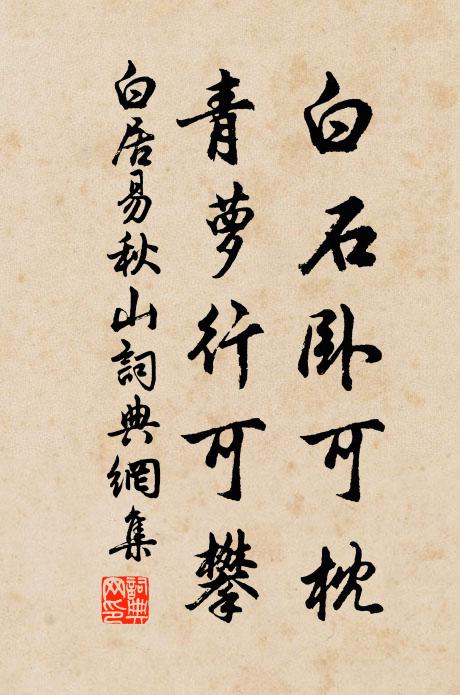 白石臥可枕
青萝行可攀
白居易秋山詞典網集
詞典网印